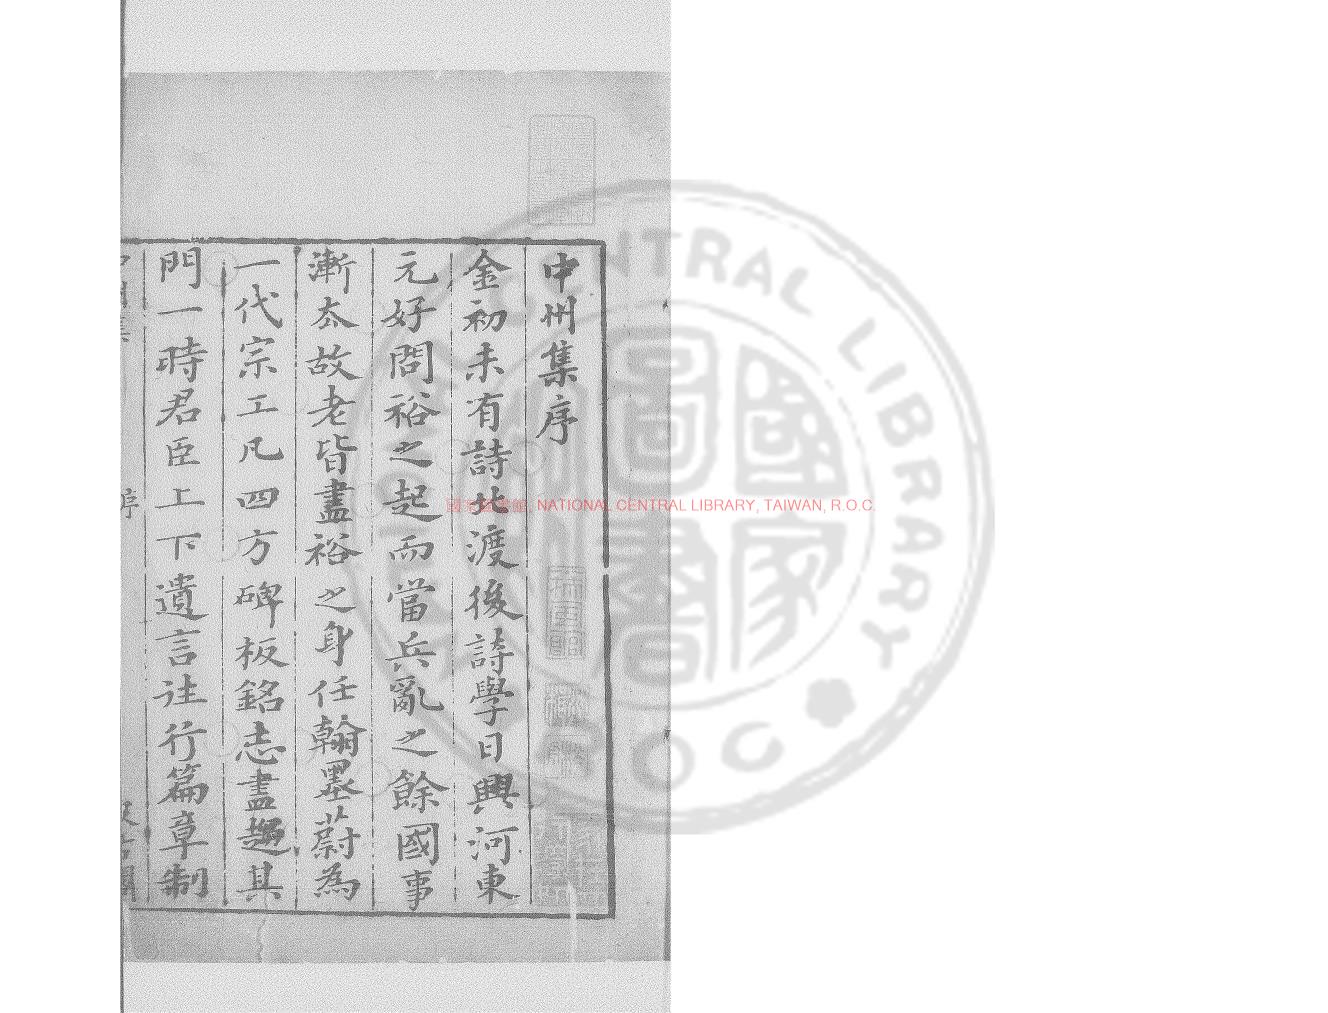 中州集序
金初未有詩北渡後詩學日興河東
元好問裕之起而當兵亂之餘國事
漸太故老皆盡裕之身任翰墨蔚為
一代宗工凡四方碑板銘志盡趨其
門一時君臣上下遺言往行篇章制
序
國家圖書館, NATIONAL CENTRAL LIBRARY, TAIWAN, R.O.C.
CENTRAL LIBRARY
R O C
國家
圖書